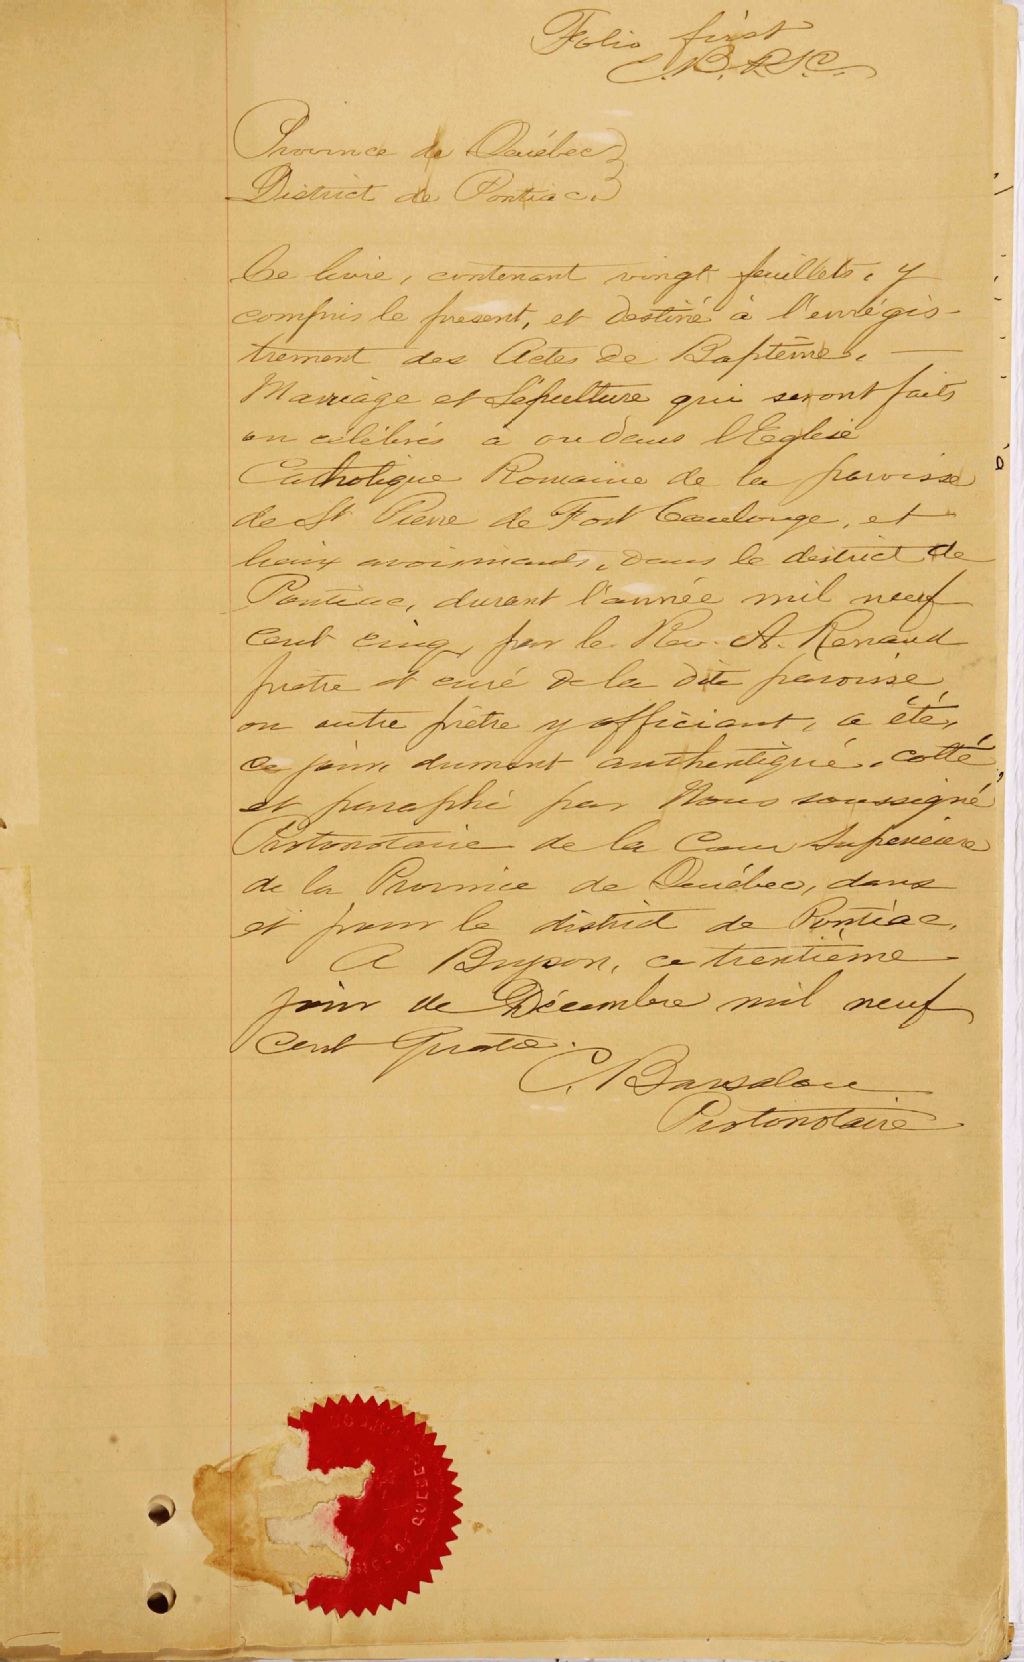 Folio first
C.B. P.S.C.
Province de Québec
District de Pontiac.
Ce livre, contenant vingt feuillets, y
compris le present, et destiné à l'enrégis-
trement des Actes de Baptême,
Mariage et Sépulture qui seront faits
ou célébrés à ou dans l'Eglise
Catholique Romaine de la paroisse
de St Pierre de Fort Coulonge, et
lieux avoisinants, dans le district de
Pontiac, durant l'année mil neuf
cent cinq, par le Rev. A. Renaud
prêtre et curé de la dite paroisse
ou autre prêtre y officiant, a été,
ce jour, dument authentiqué, cotté
et paraphé par Nous soussigné
Protonotaire de la Cour Supérieure
de la Province de Québec, dans
et pour le district de Pontiac.
A Bryson, ce trentième
jour de Décembre mil neuf
cent quatre.
C. Barsalou
Protonotaire
QUEBEC